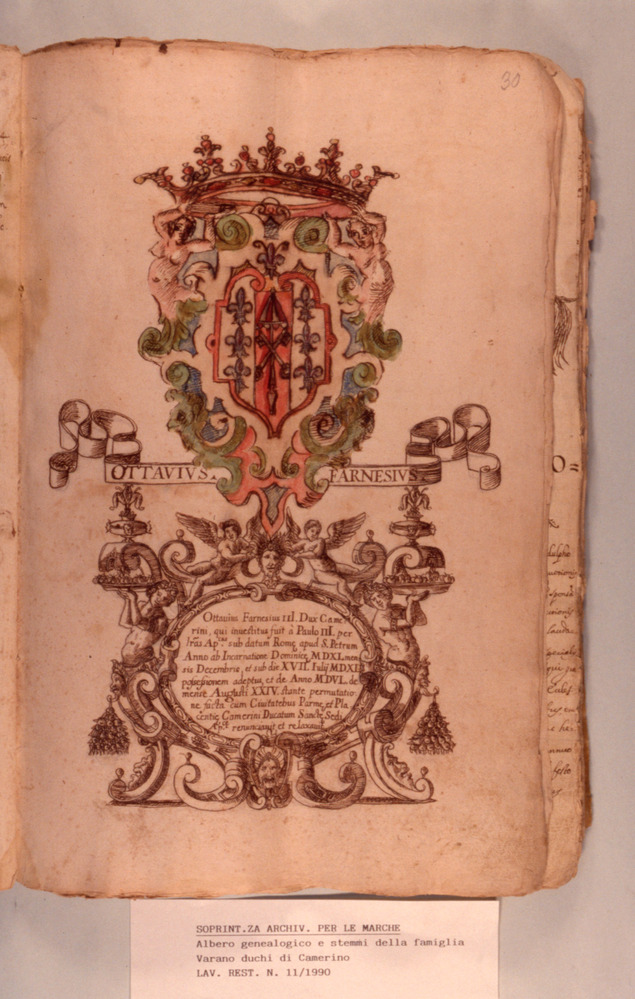 30
OTTAVIVS.
FARNESIVS
Ottavius Farnesius III. Dux Came
rini, qui investitus fuit à Paulo III. per
lras Ap.cas sub datum Rome apud S. Petrum
Anno ab Incarnatione Dominice MDXL men
sis Decembris, et sub die XVII. Iulij MDXLI
possessionem adeptus, et de Anno MDVL. de
mense Augusti XXIV. stante permutatio
ne facta cum Ciuitatebus Parme, et Pla
centie Camerini Ducatum Sancte Sedi
renunciauit et relaxauit
SOPRINT.ZA ARCHIV. PER LE MARCHE
Albero genealogico e stemmi della famiglia
Varano duchi di Camerino
LAV. REST. N. 11/1990